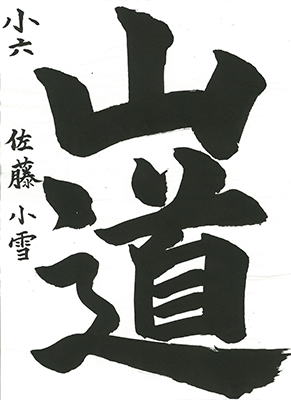 山道
小六
佐藤小雪